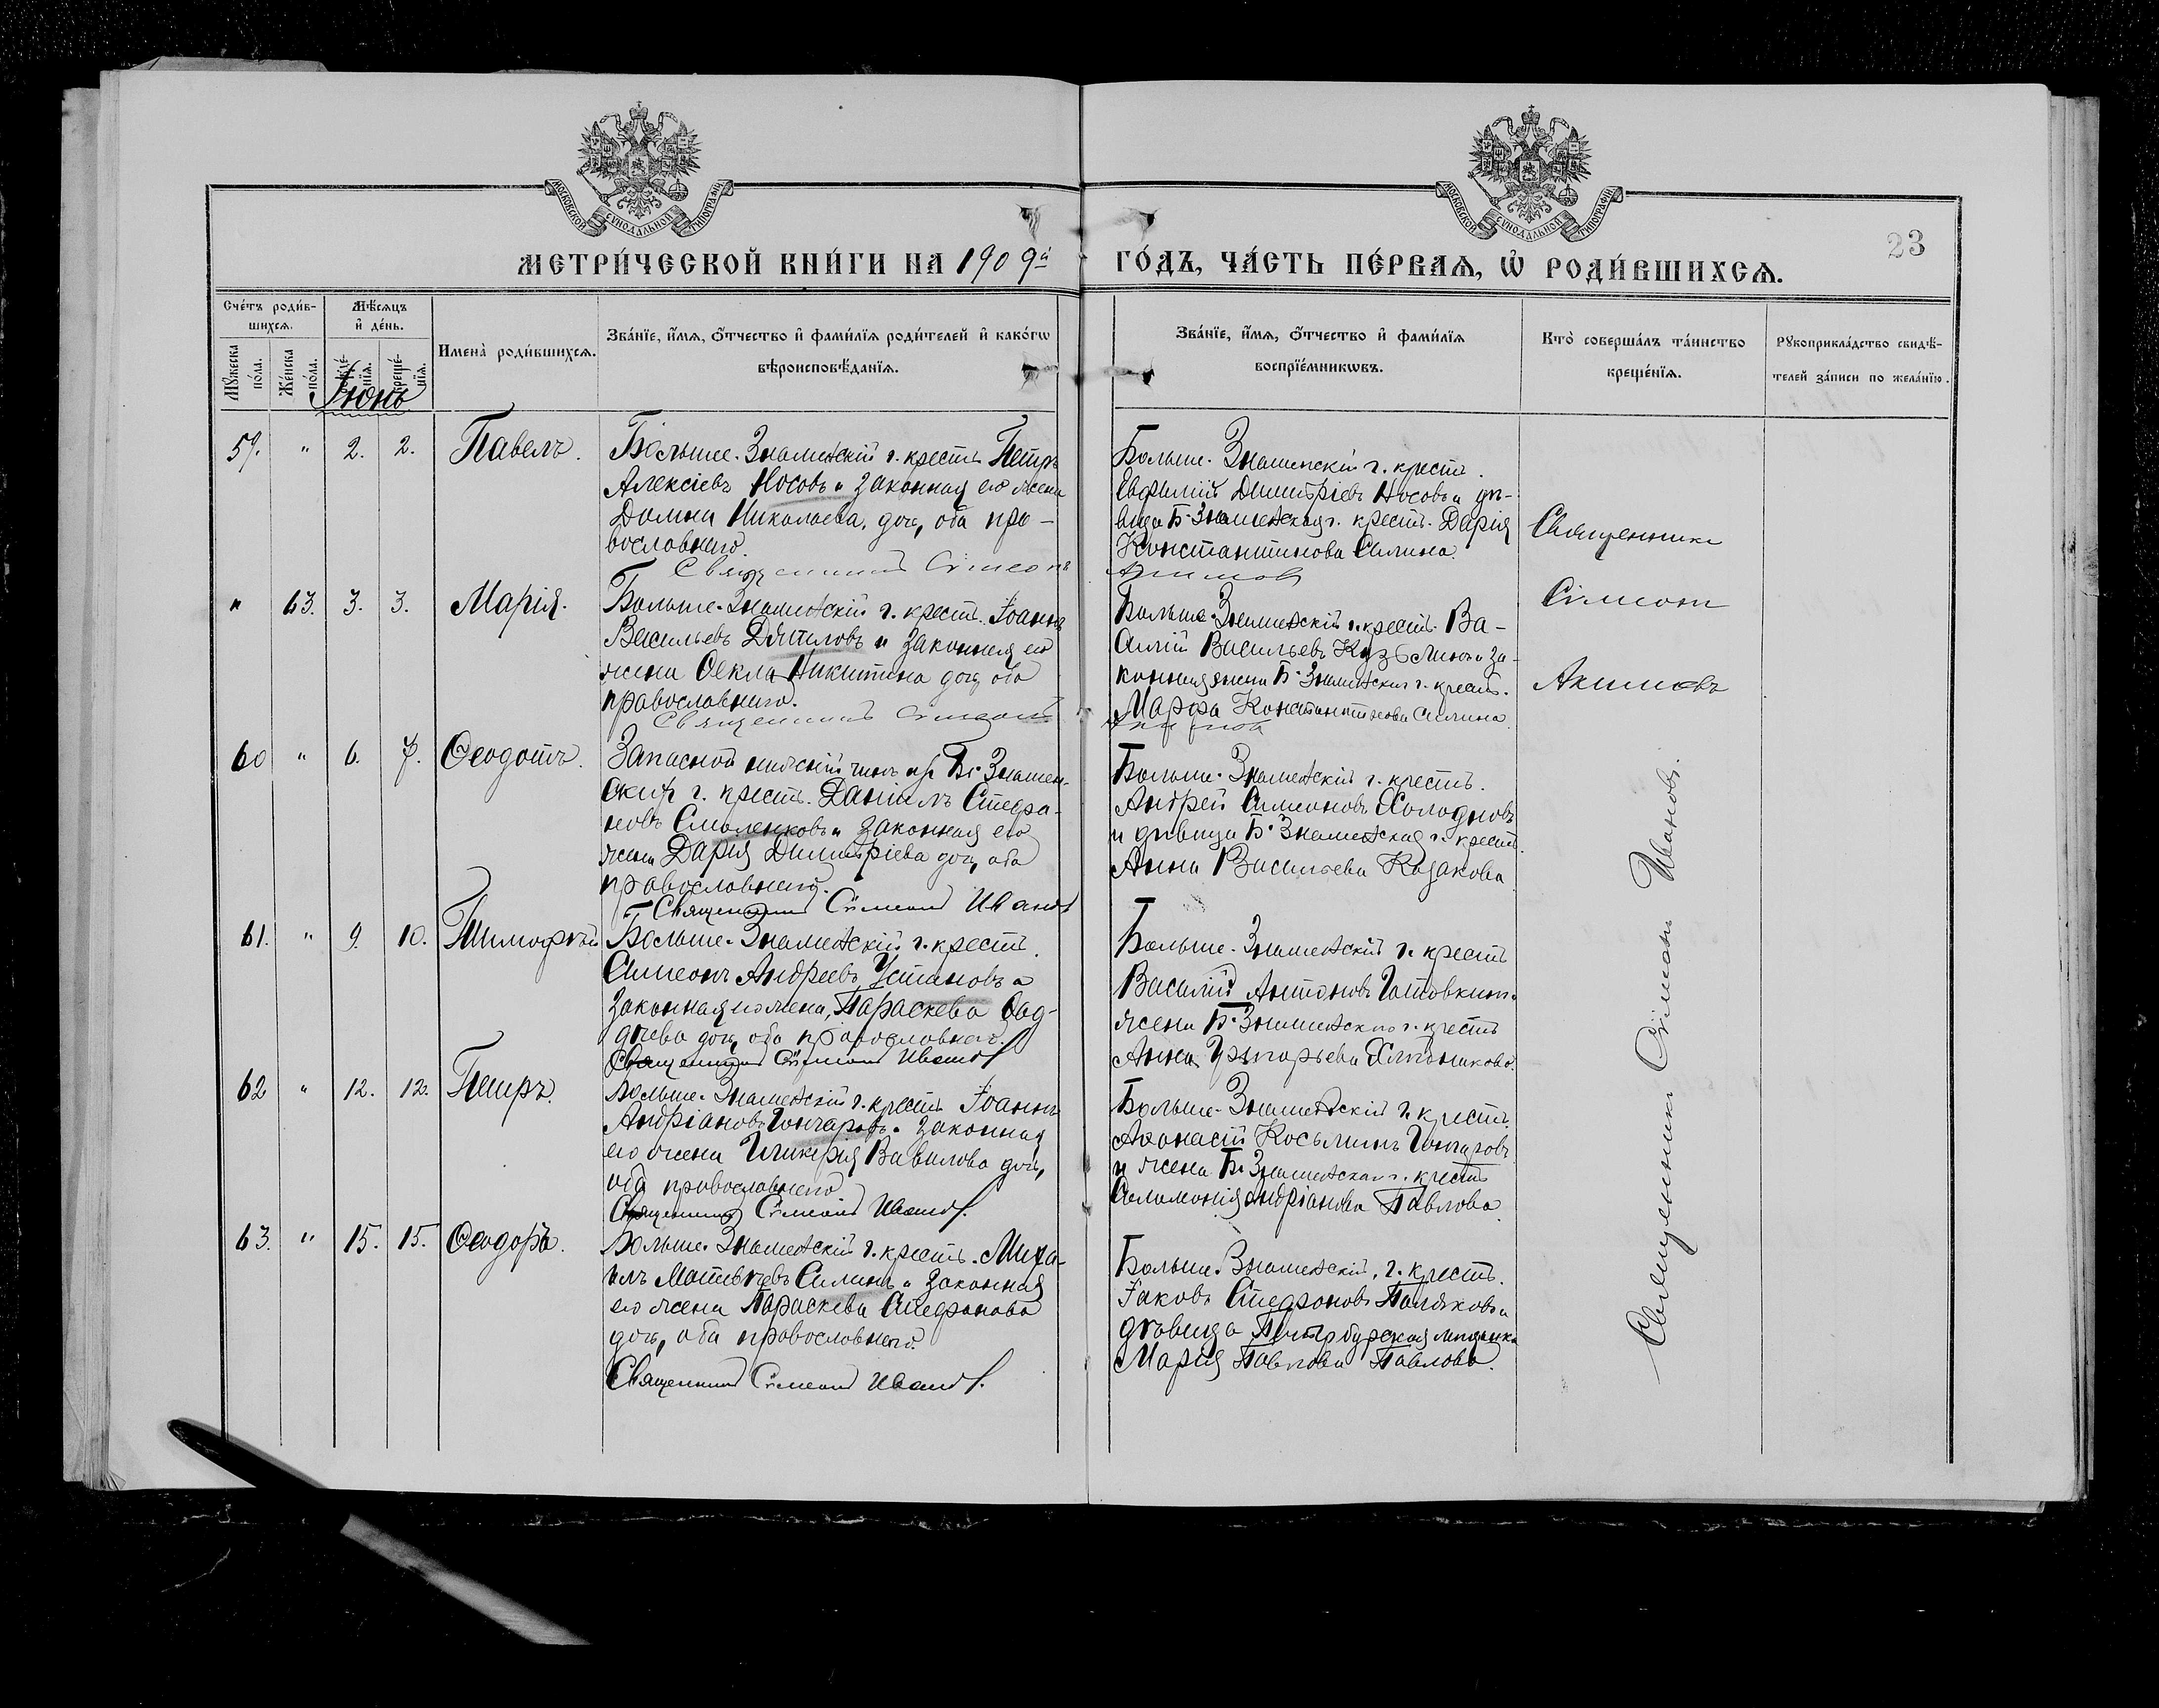 МОСКОВСКОЙ СУНОДАЛЬНОЙ ТИПОГРАФІИ
МОСКОВСКОЙ СУНОДАЛЬНОЙ ТИПОГРАФІИ
23
МЕТРИ́ЧЕСКОЙ КНИ́ГИ НА 1909й ГО́ДЪ, ЧА́СТЬ ПЕ́РВАѦ, Ѽ РОДИ́ВШИХСѦ.
Счётъ роди́в-
шихсѧ.
Мѣ́сѧцъ
и҆ де́нь.
Мꙋ́жеска по́ла.
Же́нска по́ла.
креще́-нїѧ.
Имена̀ роди́вшихсѧ.
Зва́нїе, и҆́мѧ, ѻ҆́тчество и҆ фами́лїѧ роди́телей и҆ како́гѡ
вѣроисповѣ́данїѧ.
Зва́нїе, и҆́мѧ, ѻ҆́тчество и҆ фами́лїѧ
воспрїе́мникѡвъ.
Кто̀ соверша́лъ та́инство
креще́нїѧ.
Рꙋкоприкла́дство свидѣ́-
телей за́писи по жела́нїю.
Іюнь
59. " 2. 2. Павелъ.
Больше-Знаменскій г. крест. Петръ
Алексіевъ Носовъ и законная его жена
Домна Николаева, доч, оба пра-
вославнаго.
Священникъ Сімеонъ Акимовъ
Больше-Знаменскій г. крест.
Евфимій Димитріевъ Носовъ и дѣ-
вица Б-Знаменская г. крест. Дарія
Константинова Силина
" 63. 3. 3. Марія.
Больше-Знаменскій г. крест. Іоаннъ
Васильевъ и законная его
жена Ѳекла Никитина доч, оба
православнаго.
Священникъ Сімеонъ Акимовъ
Больше-Знаменскій г. крест. Ва-
силій Васильевъ Кузьминъ и за-
конная жена Б-Знаменская г. крест.
Марфа Константинова Силина
60 " 6. 7. Ѳеодотъ.
Запасной нижній чинъ из Б-Знамен-
скихъ г. крест. Даніилъ Стефа-
новъ Смоленковъ и законная его
жена Дарія Димитріева доч, оба
православнаго.
Священникъ Сімеонъ Ивановъ
Больше-Знаменскій г. крест.
Андрей Симеоновъ Холодновъ
и дѣвица Б-Знаменская г. крест.
Анна Васильева Козакова
61. " 9. 10. Тимофей
Больше-Знаменскій г. крест.
Симеонъ Андреевъ Устиновъ и
законная его жена, Параскева Ѳад-
дѣева доч, оба православнаго.
Священникъ Сімеонъ Ивановъ
Больше-Знаменскій г. крест.
Василій Антоновъ
жена Б-Знаменского г. крест.
Анна Григорьева
62 " 12. 12. Петръ.
Больше-Знаменскій г. крест. Іоаннъ
Андріановъ Гончаровъ и законная
его жена Гликерія Вавилова доч,
оба православнаго
Священникъ Сімеонъ Ивановъ.
Больше-Знаменскій г. крест.
Аѳанасій Косьминъ Гончаровъ
и жена Б-Знаменская г. крест.
Соломонія Андріанова Павлова
63. " 15. 15. Ѳеодоръ.
Больше-Знаменскій г. крест. Миха-
илъ Матвѣевъ Силинъ и законная
его жена Параскева Стефанова
доч, оба православнаго.
Священникъ Сімеонъ Ивановъ.
Больше-Знаменскій г. крест.
Іаковъ Стефановъ Поляковъ и
дѣвица Петербурская мещанка
Марія Павлова Павлова.
Священникъ
Сімеонъ
Акимовъ
Священникъ Сімеонъ Ивановъ.